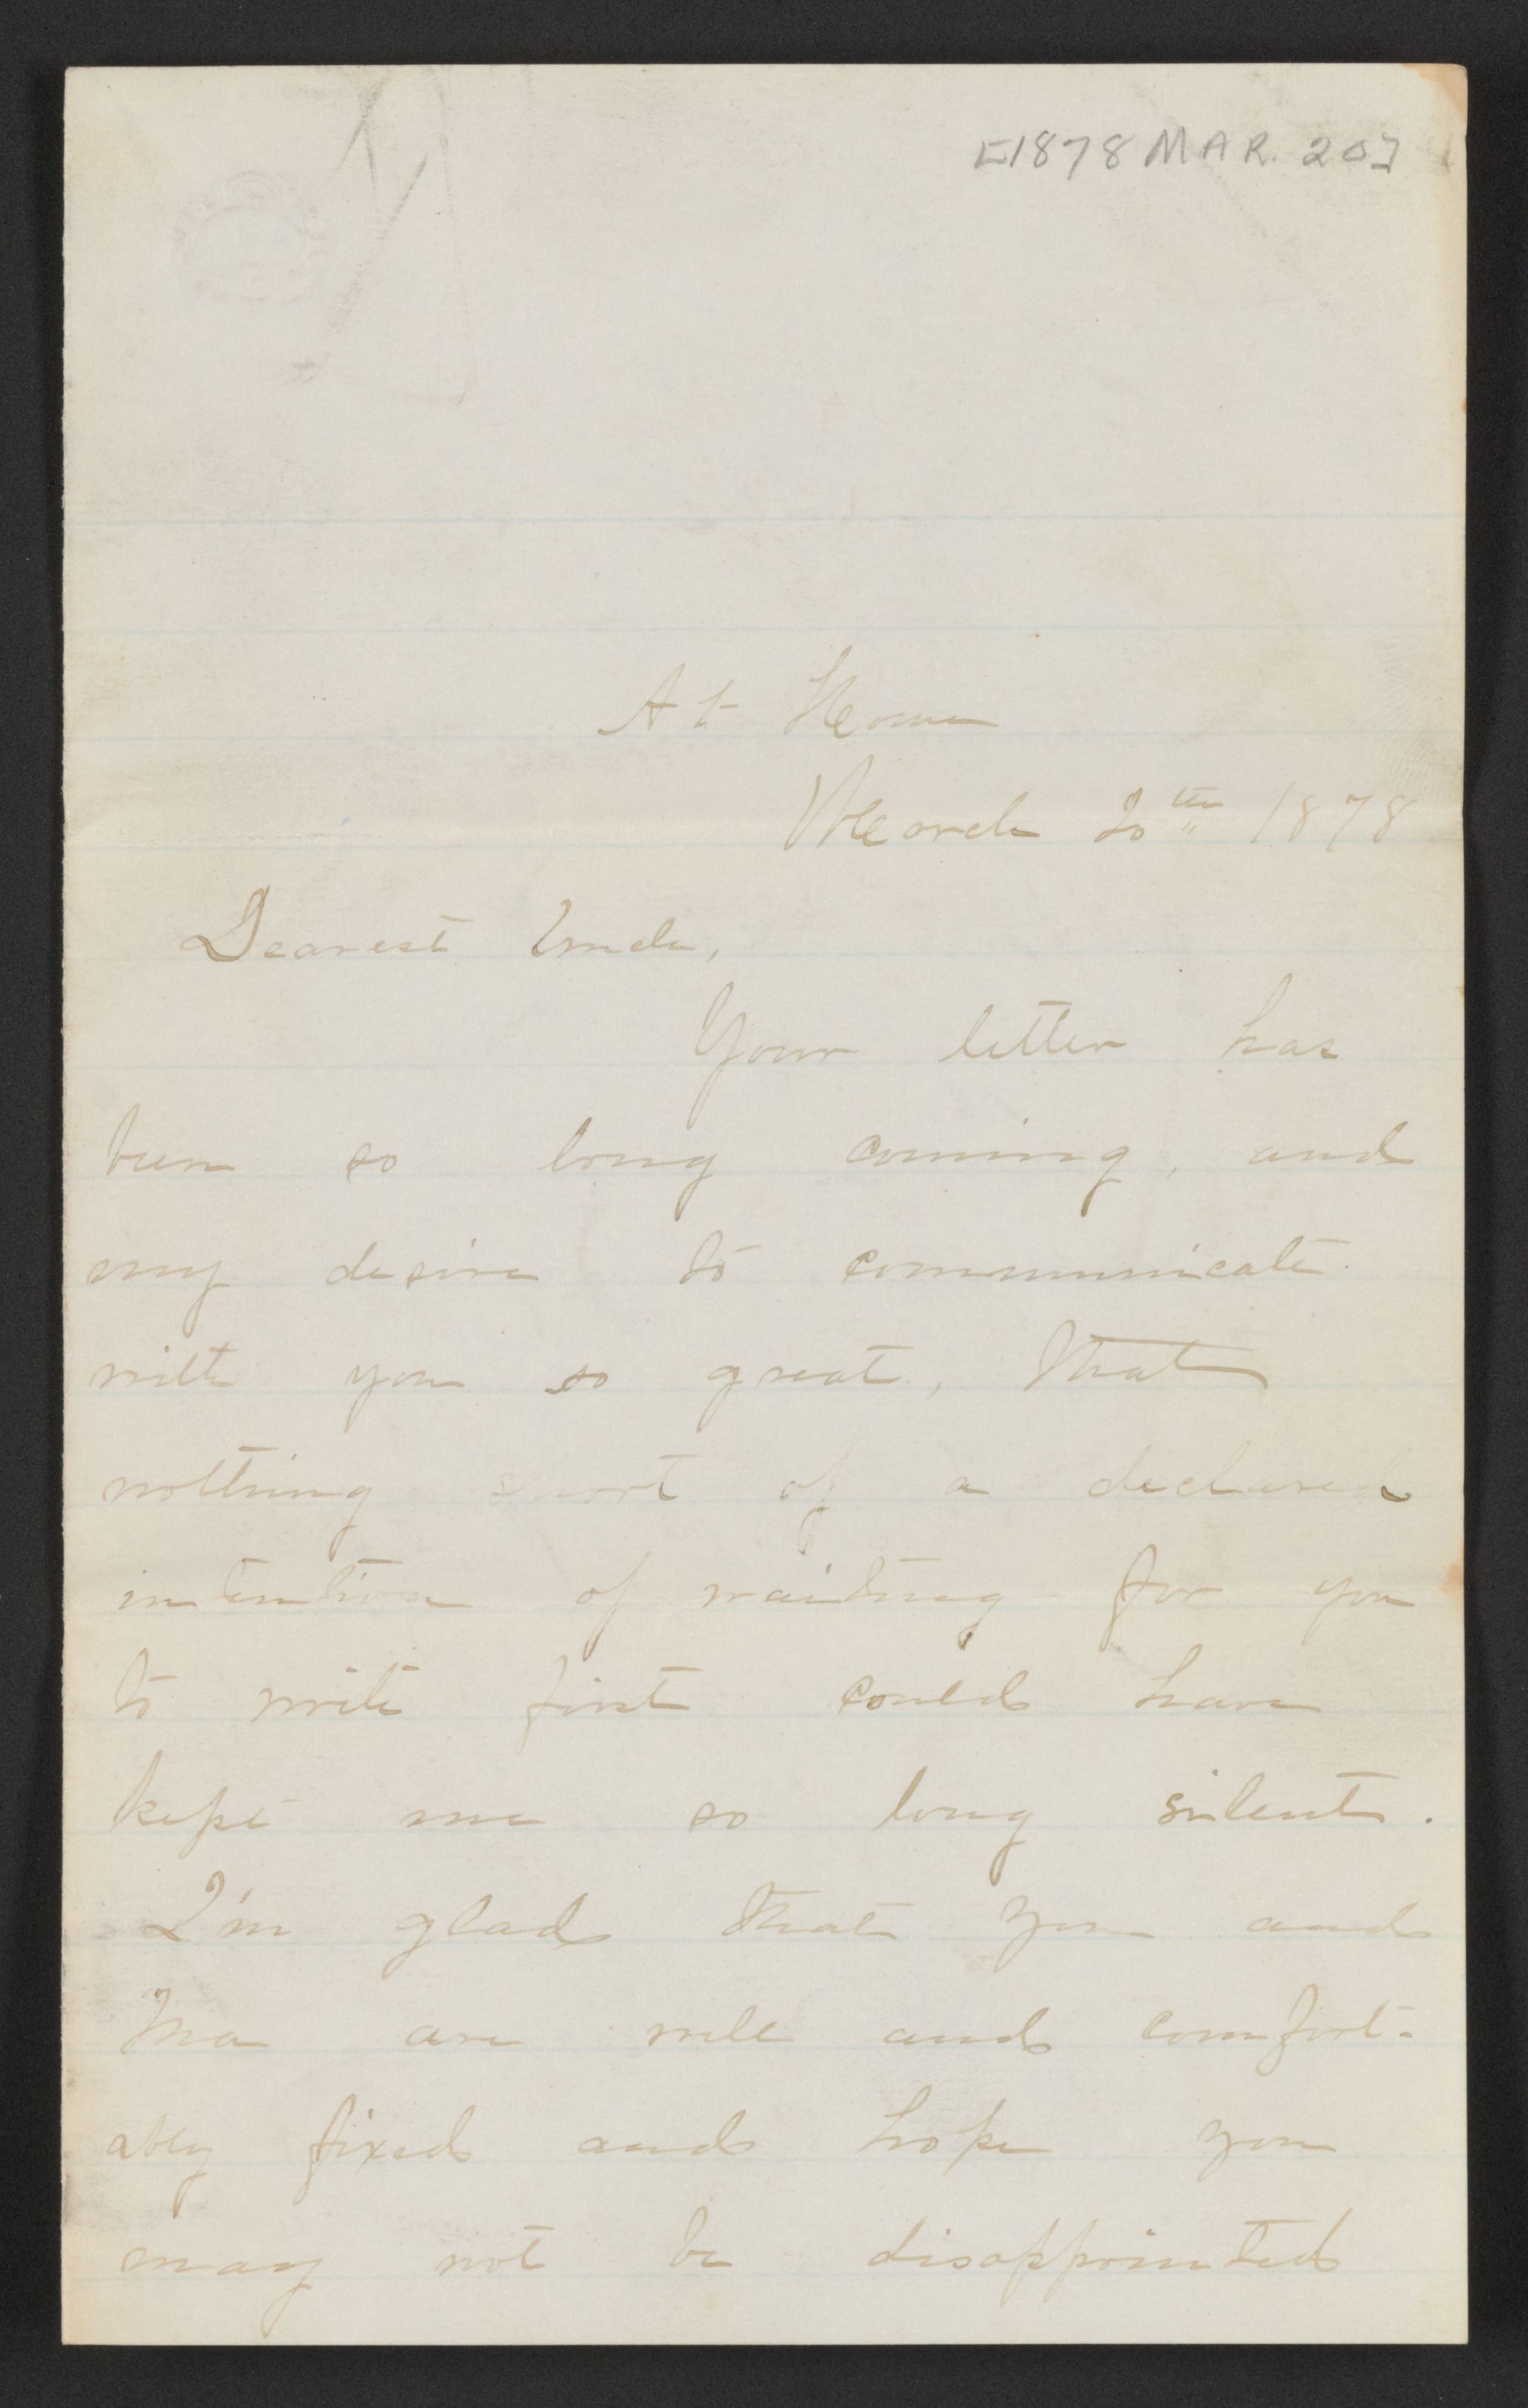 [1878 MAR. 20]
At Home
March 20th 1878
Dearest Uncle,
Your letter has
been so long coming, and
my desire to communicate
with you so great, that
nothing short of a declared
intention of waiting for you
to write first could have
kept me so long silent.
I'm glad that you and
Ma are well and comfort-
ably fixed and hope you
may not be disappointed